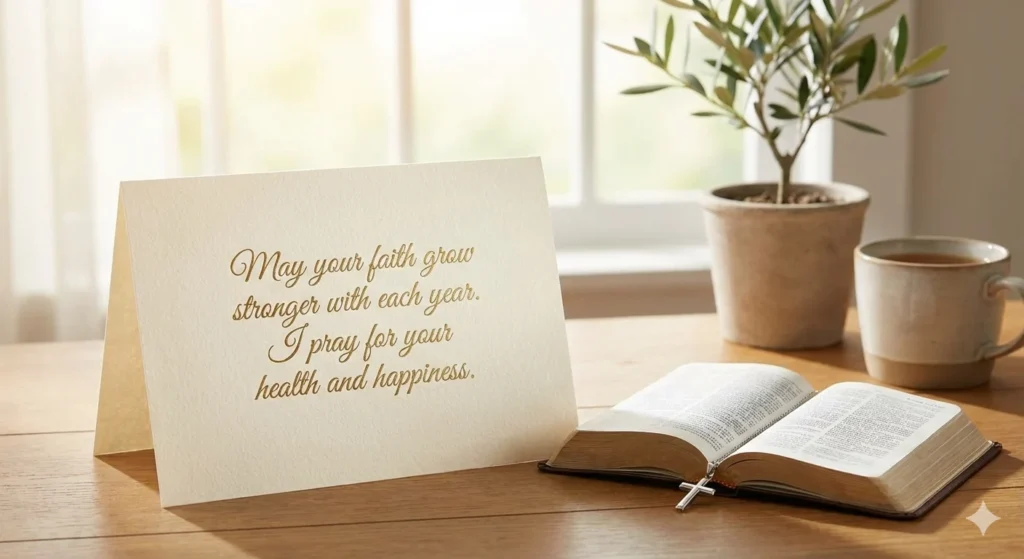 May your faith grow
stronger with each year.
I pray for your
health and happiness.